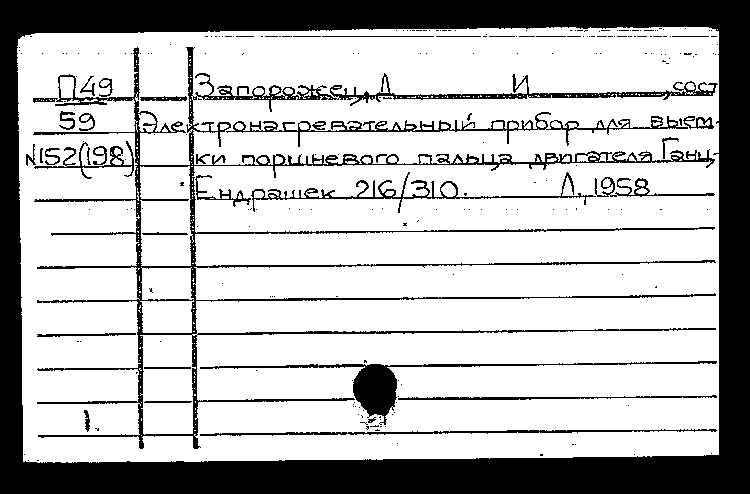 П49 Запорожец, Д И , сост
59 Электронагревательный прибор для выем-
N152(198) ки поршневого пальца двигателя Ганц-
Ендрашек 216/310. Л., 1958
1.